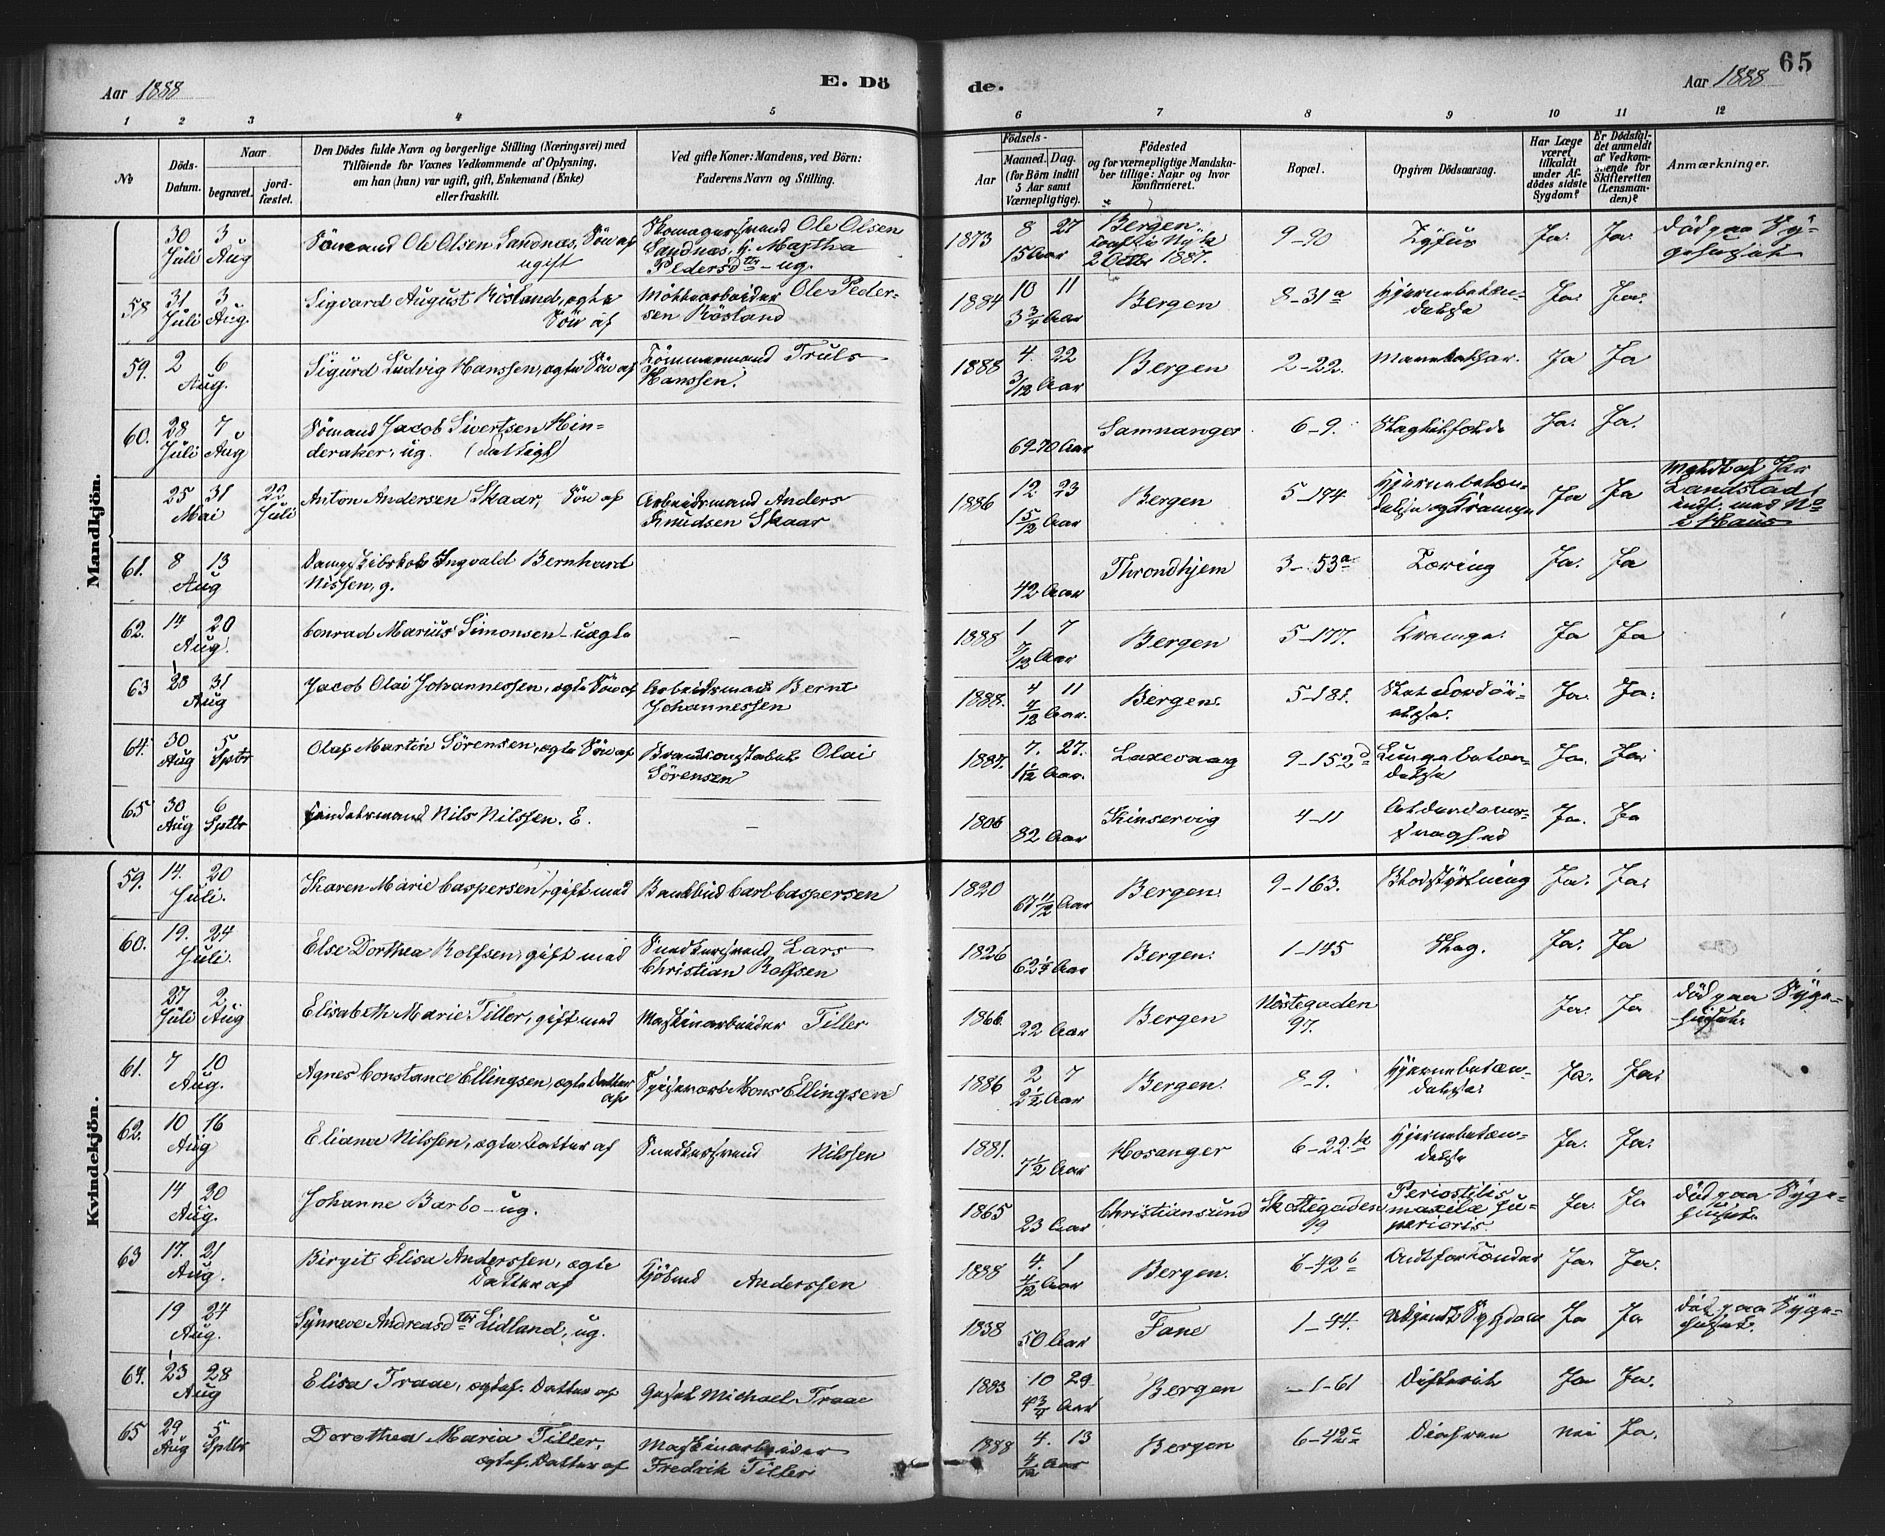 65
Aar 1888
E. Dö
de.
Aar 1888
1 2 3 4 5 6 7 8 9 10 11 12
No
Döds-
Datum.
Naar
begravet.
jord-
fæstet.
Den Dödes fulde Navn og borgerlige Stilling (Næringsvei) med
Tilföiende for Voxnes Vedkommende af Oplysning,
om han (hun) var ugift, gift, Enkemand (Enke)
eller fraskilt.
Ved gifte Koner: Mandens, ved Börn:
Faderens Navn og Stilling.
Födsels-
Aar
Maaned. Dag.
(for Börn indtil
5 Aar samt
Værnepligtige).
Födested
og for værnepligtige Mandska-
ber tillige: Naar og hvor
konfirmeret.
Bopæl.
Opgiven Dödsaarsag.
Har Læge
været
tilkaldt
under Af-
dödes sidste
Sygdom?
Er Dödsfal-
det anmeldt
af Vedkom-
mende for
Skifteretten
(Lensman-
den)?
Anmærkninger.
Mandkjön.
30 Juli 3 Aug Sömand Ole Olsen Sandnæs, Sön af
ugift
Skomagersvend Ole Olsen
Sandnæs, h. Martha
Pedersdtr - ug.
1873 8 27
15 Aar
Bergen.
2 Octbr 1887.
9-90 Tyfus Ja. Ja. död paa Sy-
gehuset
58 31 Juli 3 Aug. Sigvard August Rösland, ægte
Sön af
Ole Peder-
sen Rösland
1884 10 11
3 3/4 Aar
Bergen 8-31a Hjernebetæn-
delse Ja. Ja.
59. 2 6 Aug. Sigurd Ludvig Hanssen, ægte Sön af
Tömmermand Truls
Hanssen.
1888 4. 22
3/12 Aar
Bergen 2-22. Ja Ja
60. 28 Juli 7 Aug Sömand Jacob Sivertsen Hin-
deraker, ug. (fattigl)
69-70 Aar
Samnanger 6-9. Ja. Ja.
25 Mai 31 22 Juli Anton Andersen Skaar, Sön af
Arbeidsmand Anders
Knudsen Skaar
1886 12. 23
1 5/12 Aar
Bergen 5-194 Hjernebetæn-
delse og Krampe Ja Ja
Landstad
indf. med No
i Haus
61. 8 13 Aug Ingvald Bernhard
Nissen, g.
42 Aar
Throndhjem 3-53a Tæring Ja. Ja
62. 14 20 Aug. Conrad Marius Simonsen - uægte
-
1888 1 7
7/12 Aar
Bergen 5-177. Krampe. Ja Ja
63 28 31 Aug Jacob Olai Johannessen, ægte Sön af
Arbeidsmand Bernt
Johannessen
1888. 4 11
4/12 Aar.
Bergen. 5-181. Ja. Ja.
64. 30 Aug 5 Sptbr Olaf Martin Sörensen, ægte Sön af
Brandconstabel Olai
Sörensen
1887. 7. 27.
1 1/12 Aar.
Laxevaag 9-152d Lungebetæn-
delse Ja. Ja.
65 30 Aug 6 Sptbr Handelsmand Nils Nilssen. E.
-
1806
82 Aar
Kinservig 4-11 Alderdoms-
svaghed Ja. Ja
Kvindekjön.
59. 14. 20 Juli. Karen Marie Caspersen, gift med
Bankbud Carl Caspersen
1820
67 11/12 Aar
Bergen. 9-163. Blodstyrtning Ja. Ja.
60. 19. 24 Juli. Else Dorthea Rolfsen, gift med
Snedkersvend Lars
Christian Rolfsen
1826
62 1/4 Aar
Bergen. 1-145 Slag. Ja. Ja
27 Juli 2 Aug Elisabeth Marie Tiller, gift med
Maskinarbeider Tiller
1866
22 Aar
Bergen Nöstegaden
97.
Ja. Ja död paa Syge-
huset.
61. 7 10 Aug. Agnes Constance Ellingsen, ægte Datter
af
Mons Ellingsen
1886 2 7
2 1/2 Aar
Bergen. 8-9. Hjernebetæn-
delse. Ja. Ja.
62. 10 16 Aug Eliana Nilssen, ægte Datter af
Snedkersvend Nilssen
1881.
7 1/2 Aar
Hosanger 6-22 Hjernebetæn-
delse Ja. Ja.
14 20 Aug. Johanne Barbo - ug.
1865
23 Aar
Christiansund Skottegaden
19
Periostitis
maxilæ su-
perioris.
Ja. Ja död paa Syge-
huset.
63 17. 21 Aug. Birgit Elisa Anderssen, ægte
Datter af
Anderssen
1888 4. 1
4/12 Aar
Bergen. 6-42b Ja Ja.
19 24 Aug. Synneve Andreasdtr Lidland, ug.
1838
50 Aar
Fane 1-44. Ja Ja död paa Syge-
huset.
64. 23 28 Aug Elisa Traae, ægtef. Datter af
Michael Traae
1883 10 29
4 3/4 Aar
Bergen -1-61 Difterit Ja Ja.
65 29 Aug 5 Sptbr Dorothea Maria Tiller,
ægtef. Datter af
Maskinarbeider
Fredrik Tiller
1888 4. 13
4/12 Aar
Bergen 6-42c Diarree nei Ja.